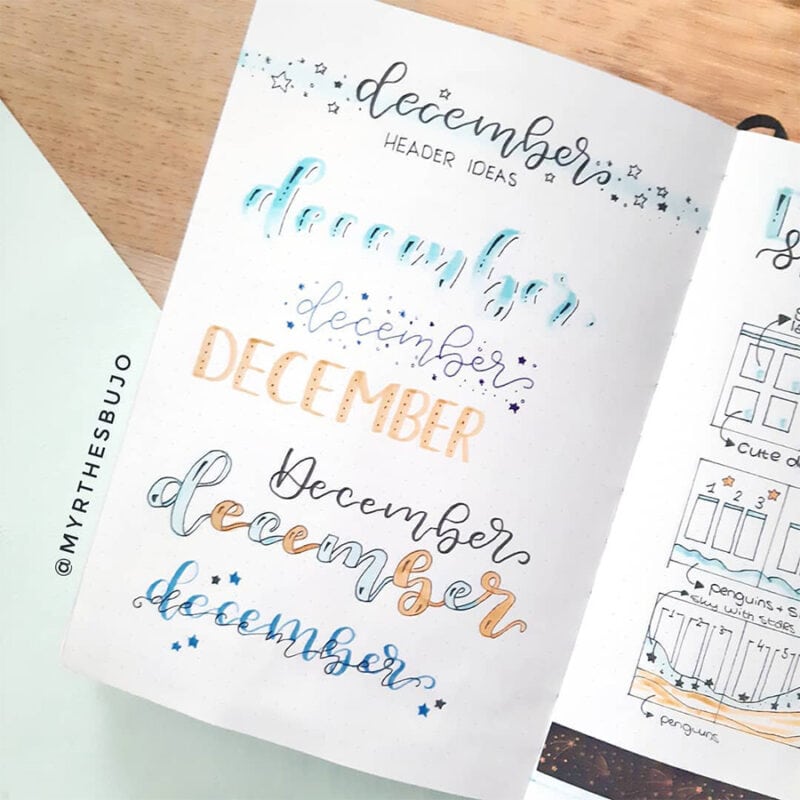 december
HEADER IDEAS
december
december
DECEMBER
December
december
december
december
@MYRTHESBUJO
cute
1 2 3
penguins +
sky with stars
1 2 3 4 5
penguins